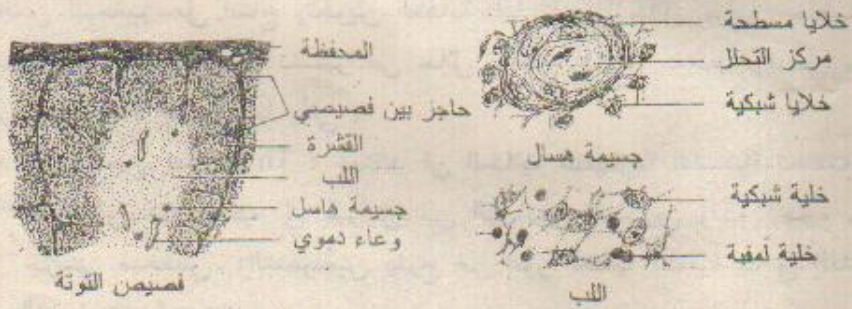 خلايا مسطحة
مركز التحلل
خلايا شبكية
جسيمة هسال
خلية شبكية
خلية لمفية
اللب
المحفظة
حاجز بين فصيصي
القشرة
اللب
جسيمة هاسل
وعاء دموي
فصيص التوتة